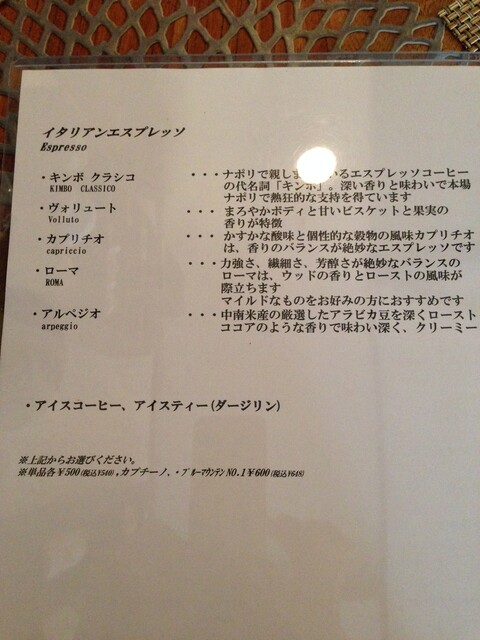 イタリアンエスプレッソ
Espresso
・キンボ クラシコ ・・・ナポリで親しま いるエスプレッソコーヒー
KIMBO CLASSICO の代名詞「キンボ」。深い香りと味わいで本場
ナポリで熱狂的な支持を得ています
・ヴォリュート ・・・ まろやかボディと甘いビスケットと果実の
Volluto 香りが特徴
・カプリチオ ・・・ かすかな酸味と個性的な穀物の風味カプリチオ
capriccio は、香りのバランスが絶妙なエスプレッソです
・ローマ ・・・力強さ、繊細さ、芳醇さが絶妙なバランスの
ROMA ローマは、ウッドの香りとローストの風味が
際立ちます
マイルドなものをお好みの方におすすめです
・アルペジオ ・・・中南米産の厳選したアラビカ豆を深くロースト
arpeggio ココアのような香りで味わい深く、クリーミー
・アイスコーヒー、アイスティー(ダージリン)
※上記からお選びください。
※単品各￥500(税込¥540)。カプチーノ、・ブルーマウンテンNO.1￥600(税込¥648)